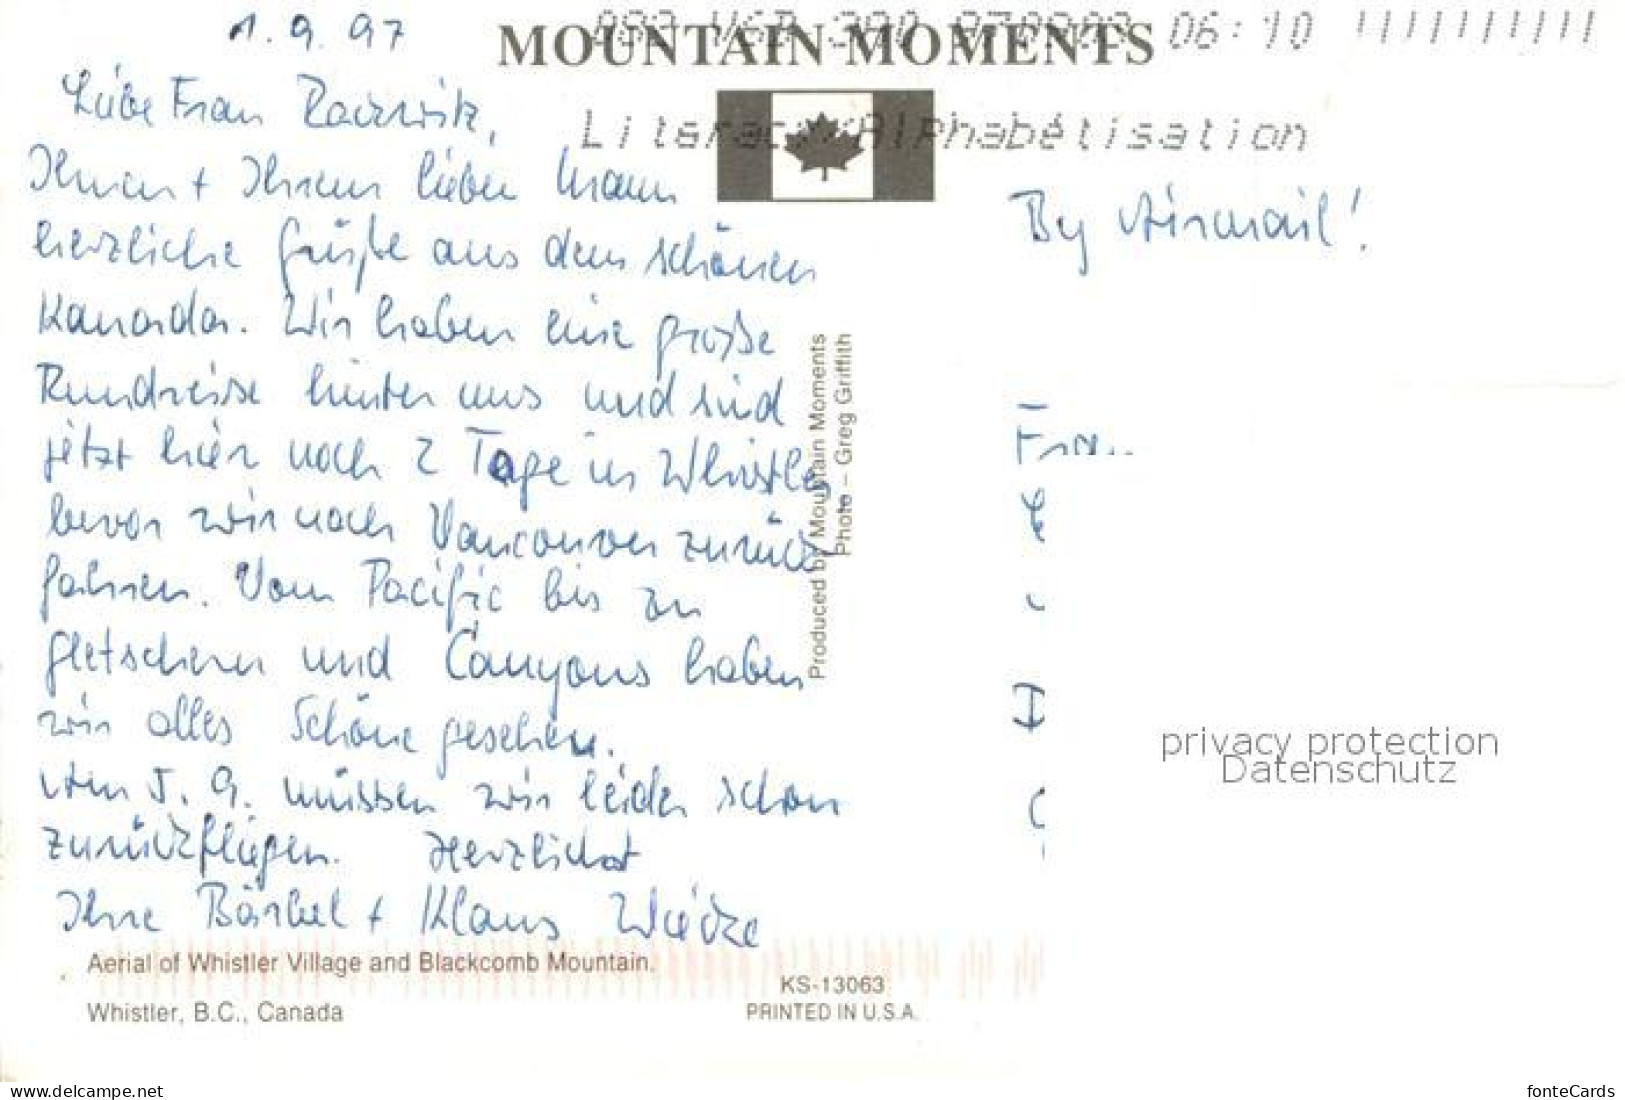 1.9.97
MOUNTAIN MOMENTS
06:10
Literacy/Alphabétisation
Liebe Frau
Ihnen + Ihrem lieben Mann
herzliche Grüße aus dem schönen
Kanada. Wir haben eine große
Rundreise hinter uns und sind
jetzt hier noch 2 Tage in Whistler
bevor wir nach Vancouver zurück
fahren. Vom Pacific bis zu
Gletschern und Canyons haben
wir alles Schöne gesehen.
Am 5.9. müssen wir leider schon
zurückfliegen. Herzlichst
Ihre Bärbel + Klaus
By Airmail!
Produced by Mountain Moments
Photo – Greg Griffith
privacy protection
Datenschutz
Aerial of Whistler Village and Blackcomb Mountain.
Whistler, B.C., Canada
KS-13063
PRINTED IN U.S.A.
www.delcampe.net
fonteCards